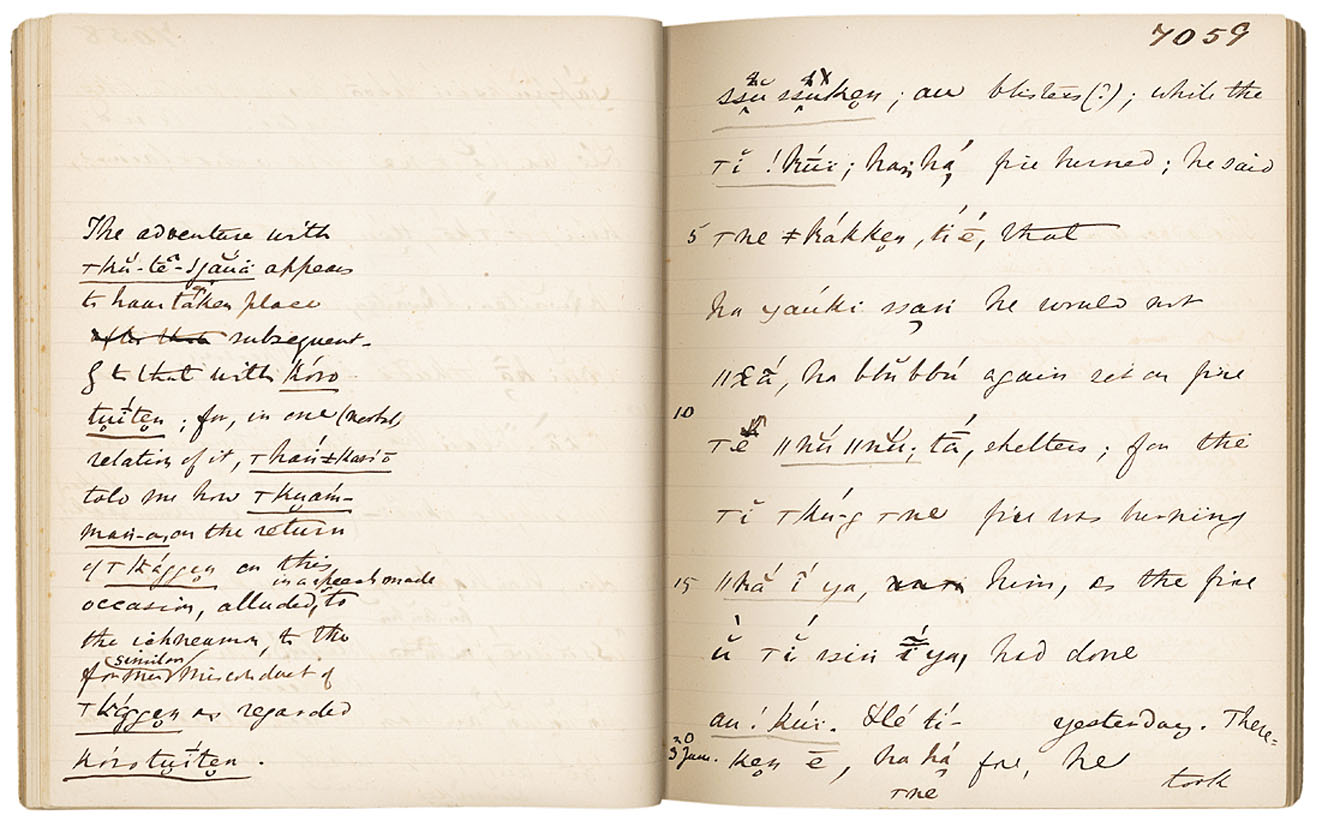 The adventure with
⊤kŭ-tĕ-sjăuä appears
to have taken place
after that subsequent-
ly to that with kóro
tu̯ítẹn ; for, in one
relation of it, ⊤hań‡kasiō
told me how ⊤ku̯am̄-
man-a, on the return
of ⊤kággẹn on this
occasion, alluded, in a speech made to
the ichneumon, to the
former similar misconduct of
⊤kággẹn as regarded
kórotu̯ítẹn .
7059
ssŭ ssŭkẹn ; au blisters(?) ; while the
⊤ĭ !kúï ; haṇ há fire burned ; he said
5 ⊤ne ‡kákkẹn, tí é, that
ha yaúki ssạn he would not
//χá, ha bbŭbbú again set on fire
10
⊤ĕ //nŭ//nŭ; tā, shelters ; for the
⊤ĭ ⊤kú-g ⊤ne fire was burning
15 //kă ĭ ya, him, as the fire
ŭ ⊤ĭ ssin ī ya, had done
au !kúï. Hé tí- yesterday. There-
20
3 Jan. kẹn ē, ha há fore, he
⊤ne took